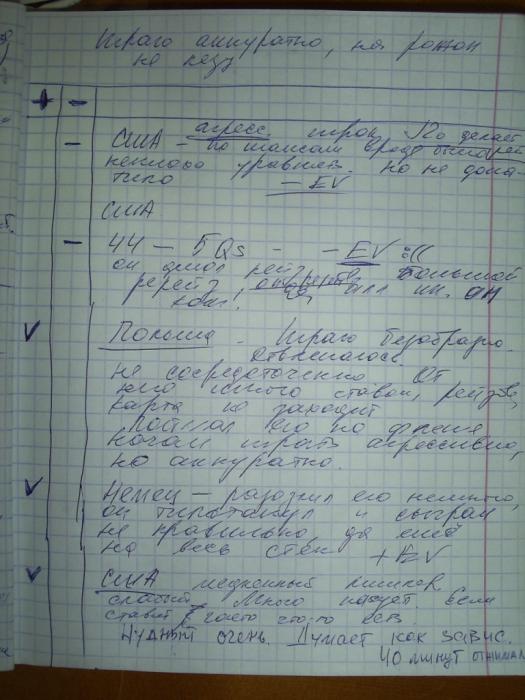 Играю аккуратно, на рожон
не лезу
+ -
- США - агресс. игрок. Но делает
по шансам вроде
неплохо уравнив. но не дока-
тило - EV
США
- 44 - 5Qs - - EV :((
он делал рейз. Большой
ререйз, он
V Польша - Играю безобразно.
Отвлекалось.
не сосредоточенно. От
него много ставок, рейзов,
карта не заходит
Поймал его на
Начал играть агрессивно,
но аккуратно.
V Немец - разозлил его немного,
он и сыграл
не правильно да ещё
на весь стек +EV
V США медленный
слабый. Много пасует. Если
ставит, часто что-то есть.
Нудный очень. Думает как завис.
40 минут отнимал